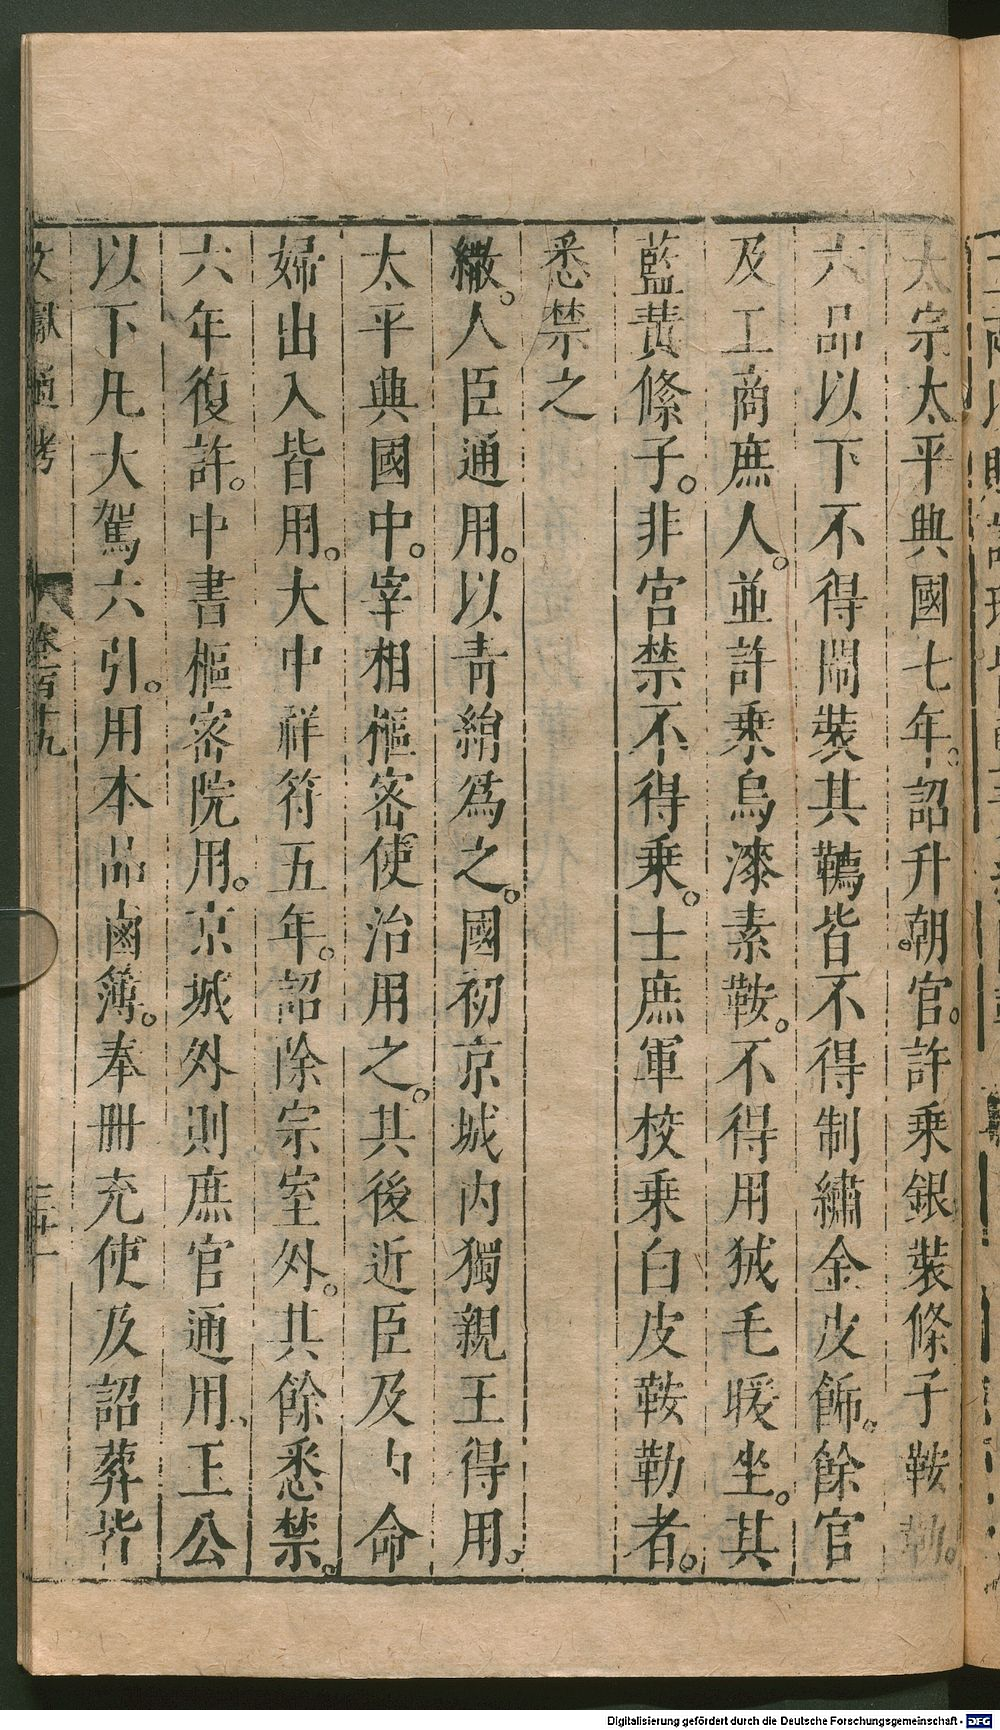 太宗太平興國七年詔升朝官許乘銀裝絛子鞍勒
六品以下不得鬧裝其韉皆不得制繡金皮飾餘官
及工商庶人並許乘烏漆素鞍不得用狨毛暖坐其
藍黄絛子非宮禁不得乘士庶軍校乘白皮鞍勒者
悉禁之
繖人臣通用以青絹爲之國初京城内獨親王得用
太平興國中宰相樞密使治用之其後近臣及内命
婦出入皆用大中祥符五年詔除宗室外其餘悉禁
六年復許中書樞密院用京城外則庶官通用王公
以下凡大駕六引用本品鹵簿奉冊充使及詔葬皆
文獻通考 卷百十九
Digitalisierung gefördert durch die Deutsche Forschungsgemeinschaft - DFG